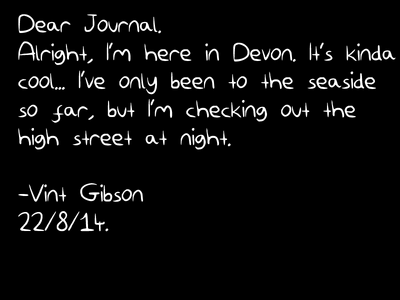 Dear Journal.
Alright, I'm here in Devon. It's kinda
cool... I've only been to the seaside
so far, but I'm checking out the
high street at night.

-Vint Gibson
22/8/14.